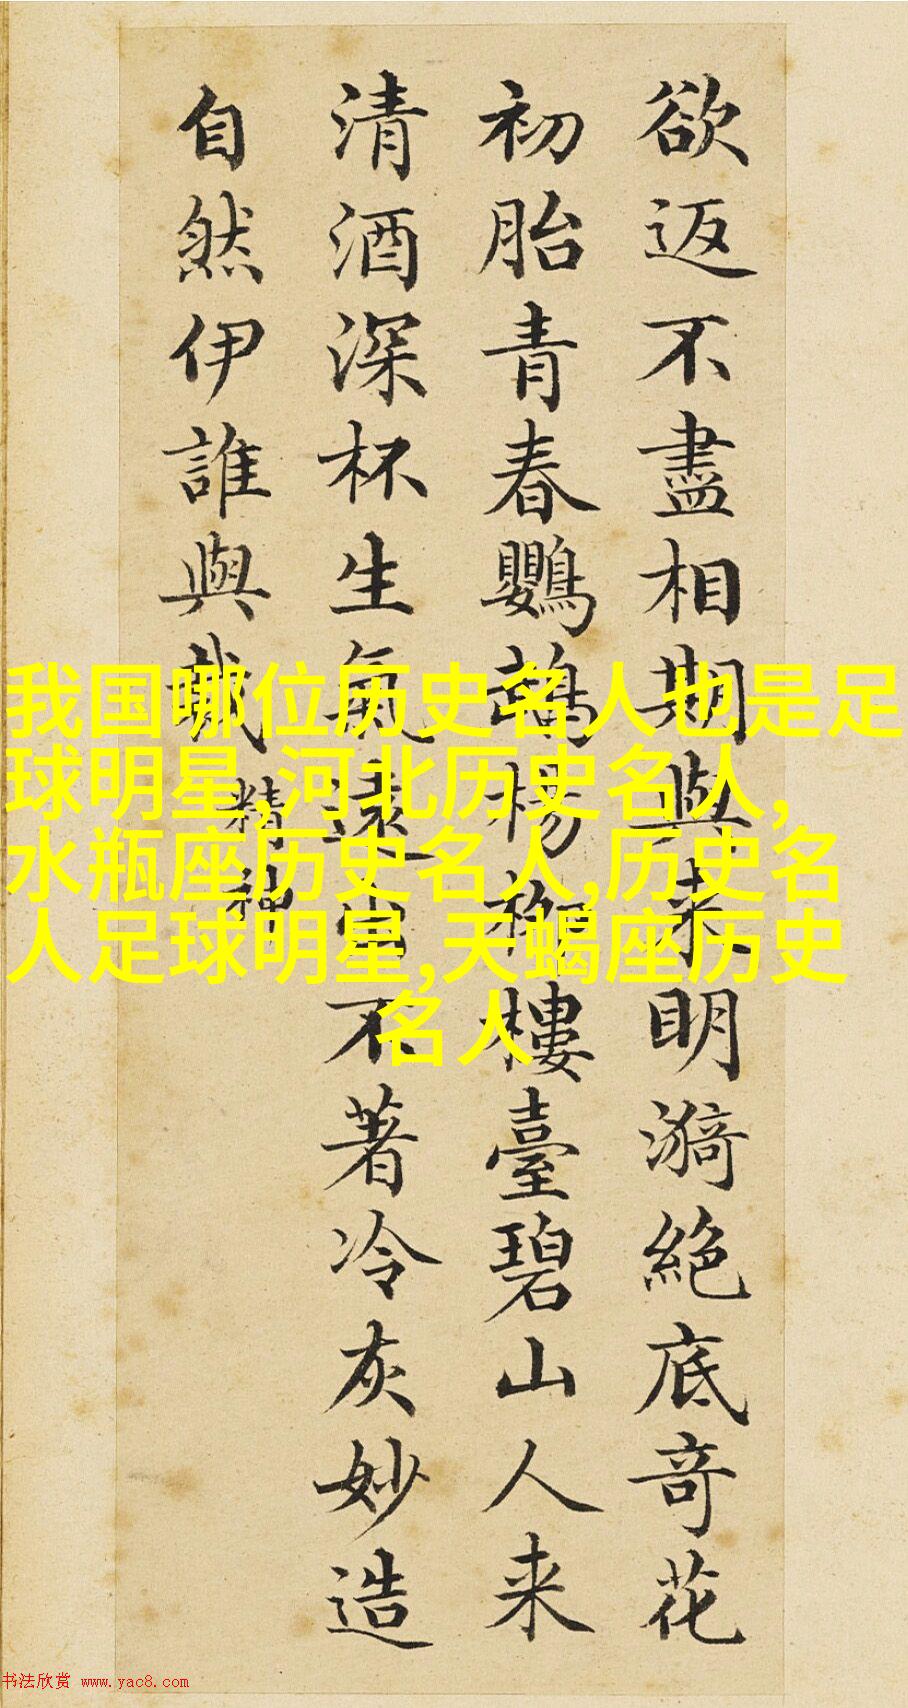 欲返不盡相期與来明漪絕底奇花
初胎青春鸚鵡楊柳樓臺碧山人来
清酒深杯生氣遠出不著冷灰妙造
自然伊誰與裁
精神
我国哪位历史名人也是足
球明星,河北历史名人,
水瓶座历史名人,历史名
人足球明星,天蝎座历史
名人
书法欣赏 www.yac8.com